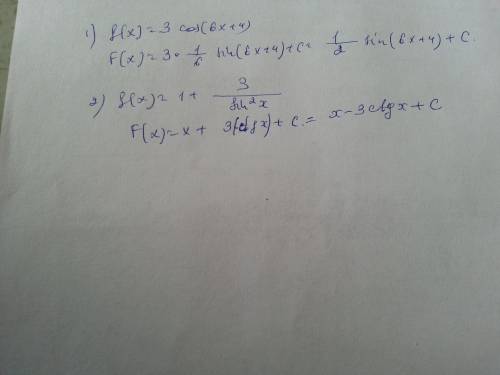 1) f(x) = 3 cos(6x+4)
F(x) = 3 · 1/6 sin(6x+4) + C = 1/2 sin(6x+4) + C.
2) f(x) = 1 + 3/sin²x
F(x) = x + 3(-ctg x) + C = x - 3ctg x + C